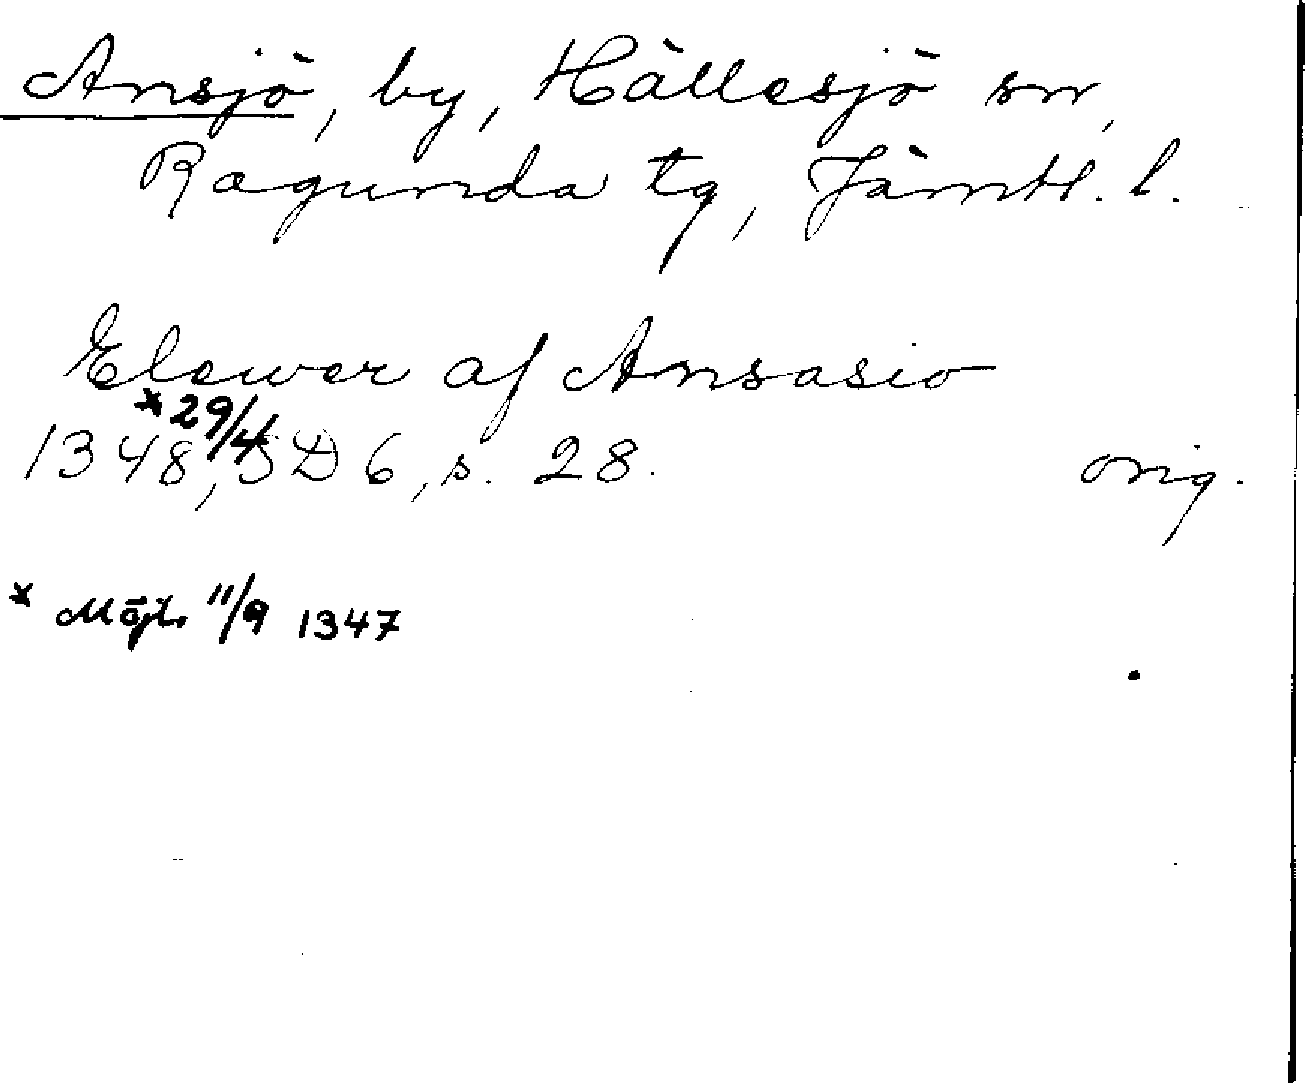 Ansjö, by, Hällesjö sn,
Ragunda tg, Jämtl. l.
Elawer af Ansasio
* 29/4
1348, SD 6, s. 28. orig.
* Möjl. 11/9 1347